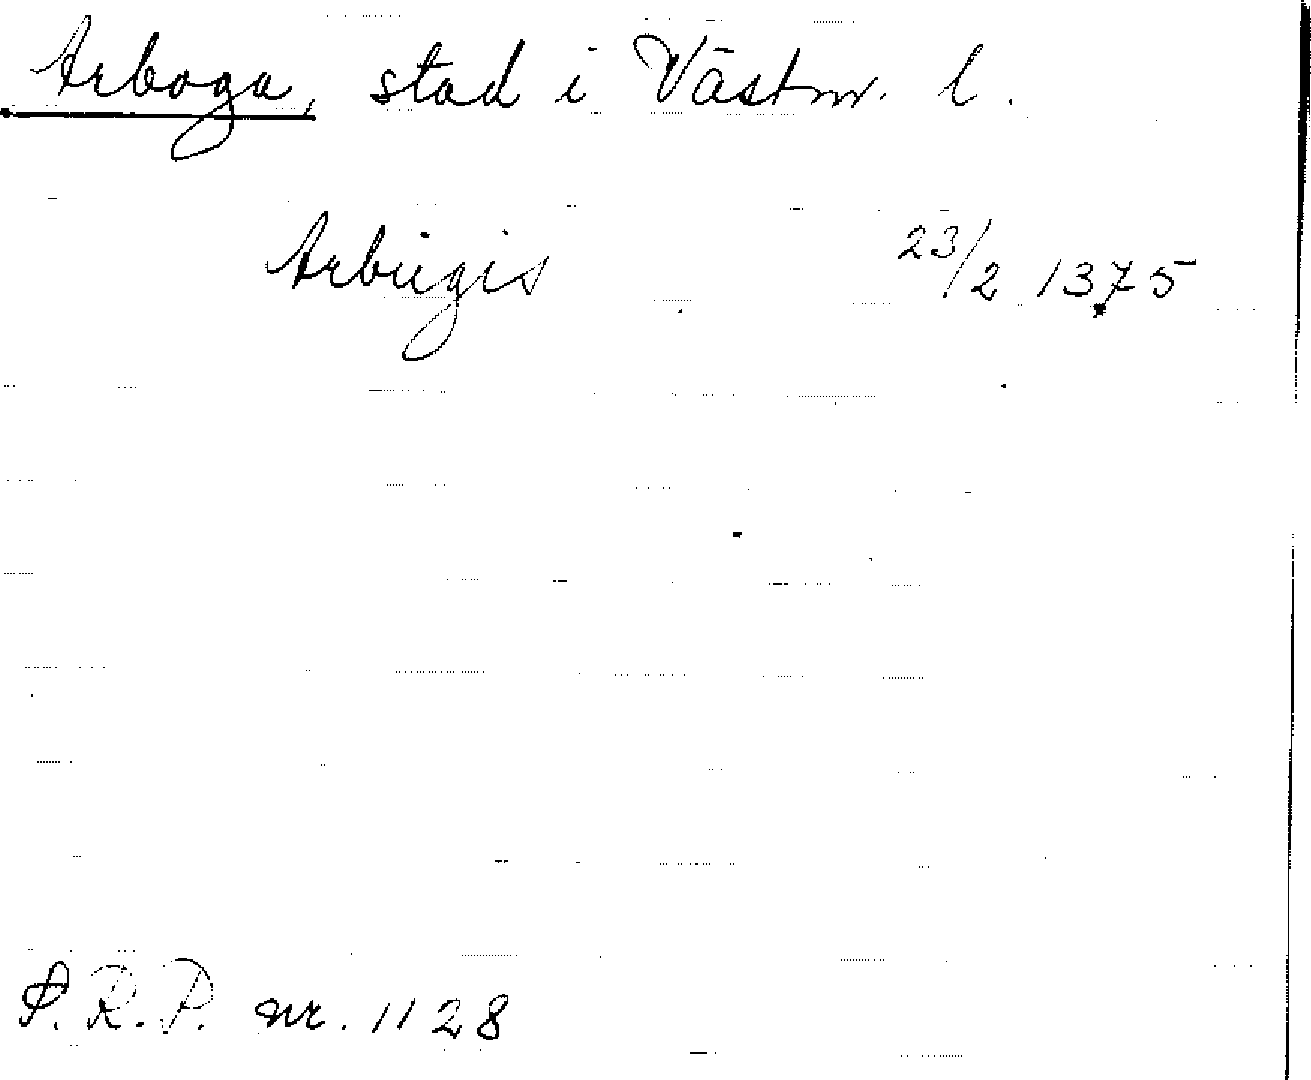 Arboga, stad i Västm. l.
Arbūgis 23/2 1375
S.R.P. nr. 1128